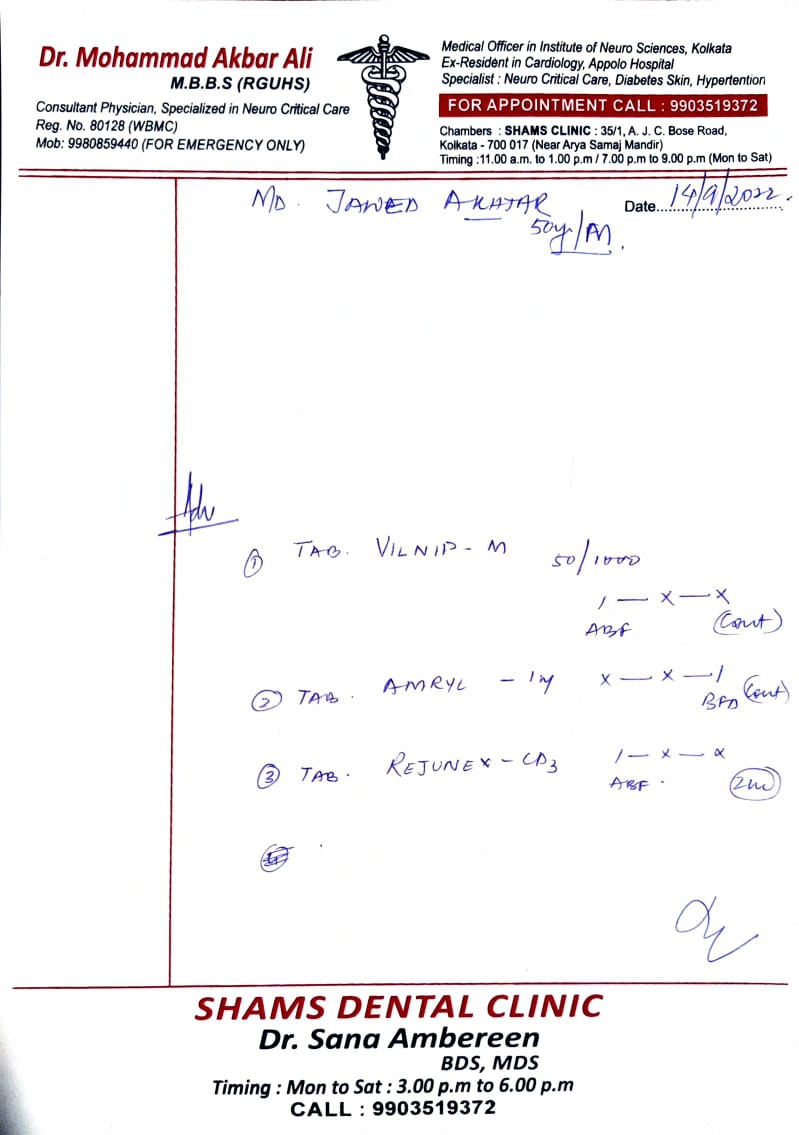 Dr. Mohammad Akbar Ali
M.B.B.S (RGUHS)
Consultant Physician, Specialized in Neuro Critical Care
Reg. No. 80128 (WBMC)
Mob: 9980859440 (FOR EMERGENCY ONLY)
Medical Officer in Institute of Neuro Sciences, Kolkata
Ex-Resident in Cardiology, Appolo Hospital
Specialist : Neuro Critical Care, Diabetes Skin, Hypertention
FOR APPOINTMENT CALL : 9903519372
Chambers : SHAMS CLINIC : 35/1, A. J. C. Bose Road,
Kolkata - 700 017 (Near Arya Samaj Mandir)
Timing :11.00 a.m. to 1.00 p.m / 7.00 p.m to 9.00 p.m (Mon to Sat)
MD. JAWED AKHTAR
Date 14/9/2022.
50y/M.
Adv
① TAB. VILNIP-M 50/1000
1 — x — x
ABF (Cont)
② TAB. AMRYL - 1m x — x — 1
BFD (Cont)
③ TAB. REJUNEX - CD3 1 — x — x
ABF. 2m
SHAMS DENTAL CLINIC
Dr. Sana Ambereen
BDS, MDS
Timing : Mon to Sat : 3.00 p.m to 6.00 p.m
CALL : 9903519372